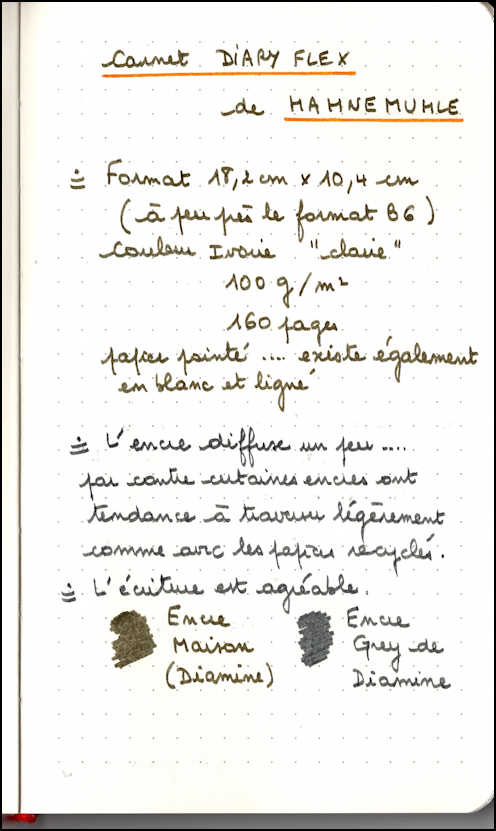 Carnet DIARY FLEX
de HAHNEMUHLE
Format 18,2 cm x 10,4 cm
(à peu près le format B6)
Couleur Ivoire "claire"
100 g/m²
160 pages
papier pointé .... existe également
en blanc et ligné
L'encre diffuse un peu ....
par contre certaines encres ont
tendance à traverser légèrement
comme avec les papiers recyclés.
L'écriture est agréable.
Encre Maison (Diamine)
Encre Grey de Diamine